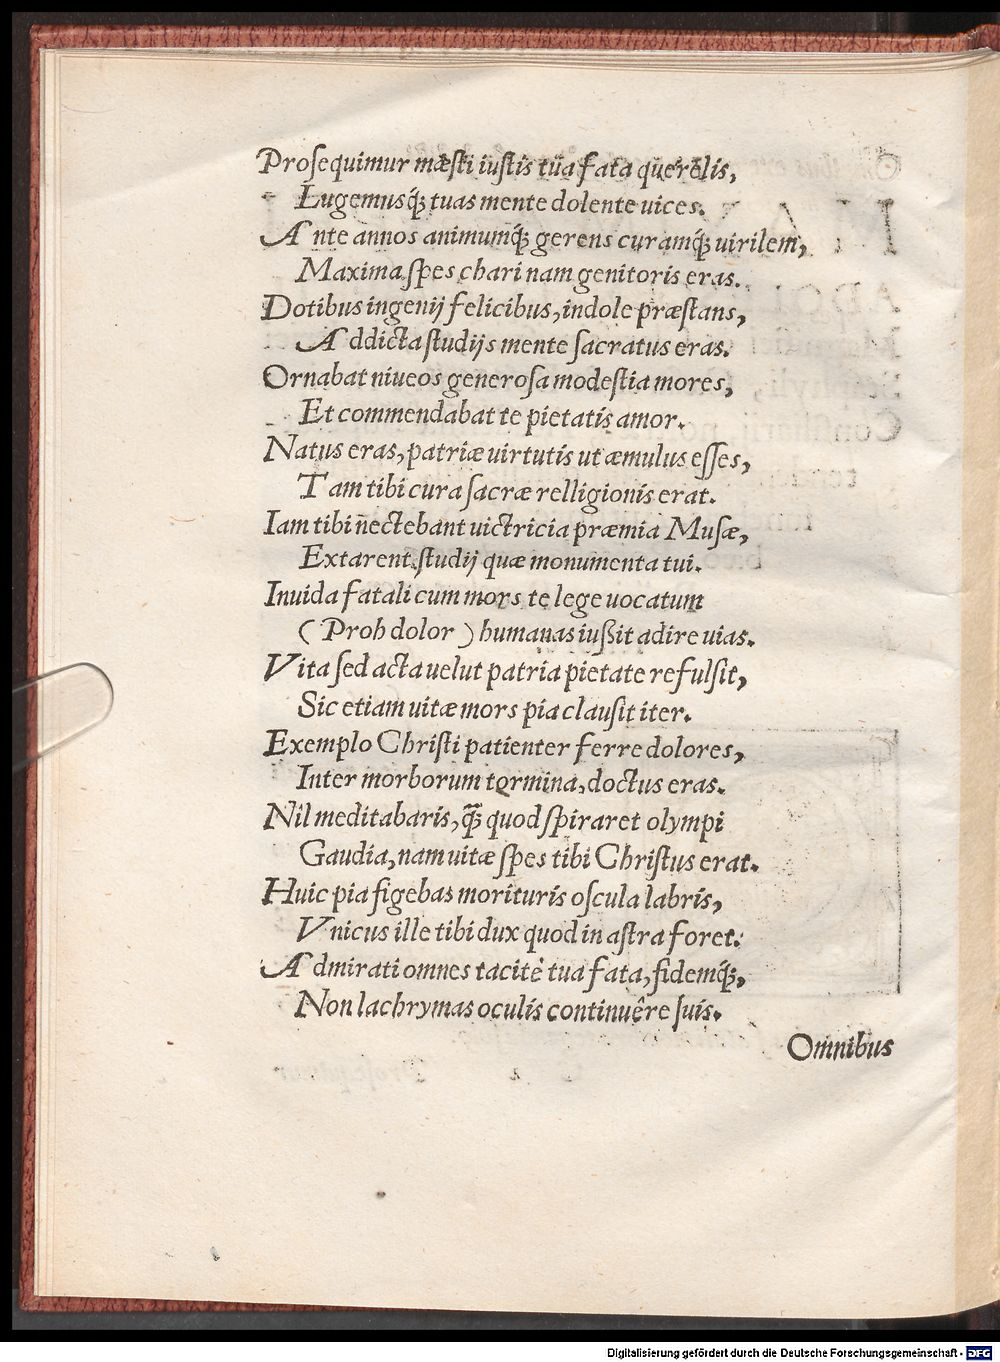 Prosequimur mæsti iustis tua fata querelis,
Lugemusq́; tuas mente dolente uices.
Ante annos animumq́; gerens curamq́; uirilem,
Maxima spes chari nam genitoris eras.
Dotibus ingenij felicibus, indole præstans,
Addicta studijs mente sacratus eras.
Ornabat niueos generosa modestia mores,
Et commendabat te pietatis amor.
Natus eras, patriæ uirtutis ut æmulus esses,
Tam tibi cura sacræ relligionis erat.
Iam tibi nectebant uictricia præmia Musæ,
Extarent studij quæ monumenta tui.
Inuida fatali cum mors te lege uocatum
( Proh dolor ) humanas iußit adire uias.
Vita sed acta uelut patria pietate refulsit,
Sic etiam uitæ mors pia clausit iter.
Exemplo Christi patienter ferre dolores,
Inter morborum tormina, doctus eras.
Nil meditabaris, q̃; quod spiraret olympi
Gaudia, nam uitæ spes tibi Christus erat.
Huic pia figebas morituris oscula labris,
Vnicus ille tibi dux quod in astra foret.
Admirati omnes tacitè tua fata, fidemq́;,
Non lachrymas oculis continuêre suis.
Omnibus
Digitalisierung gefördert durch die Deutsche Forschungsgemeinschaft - DFG